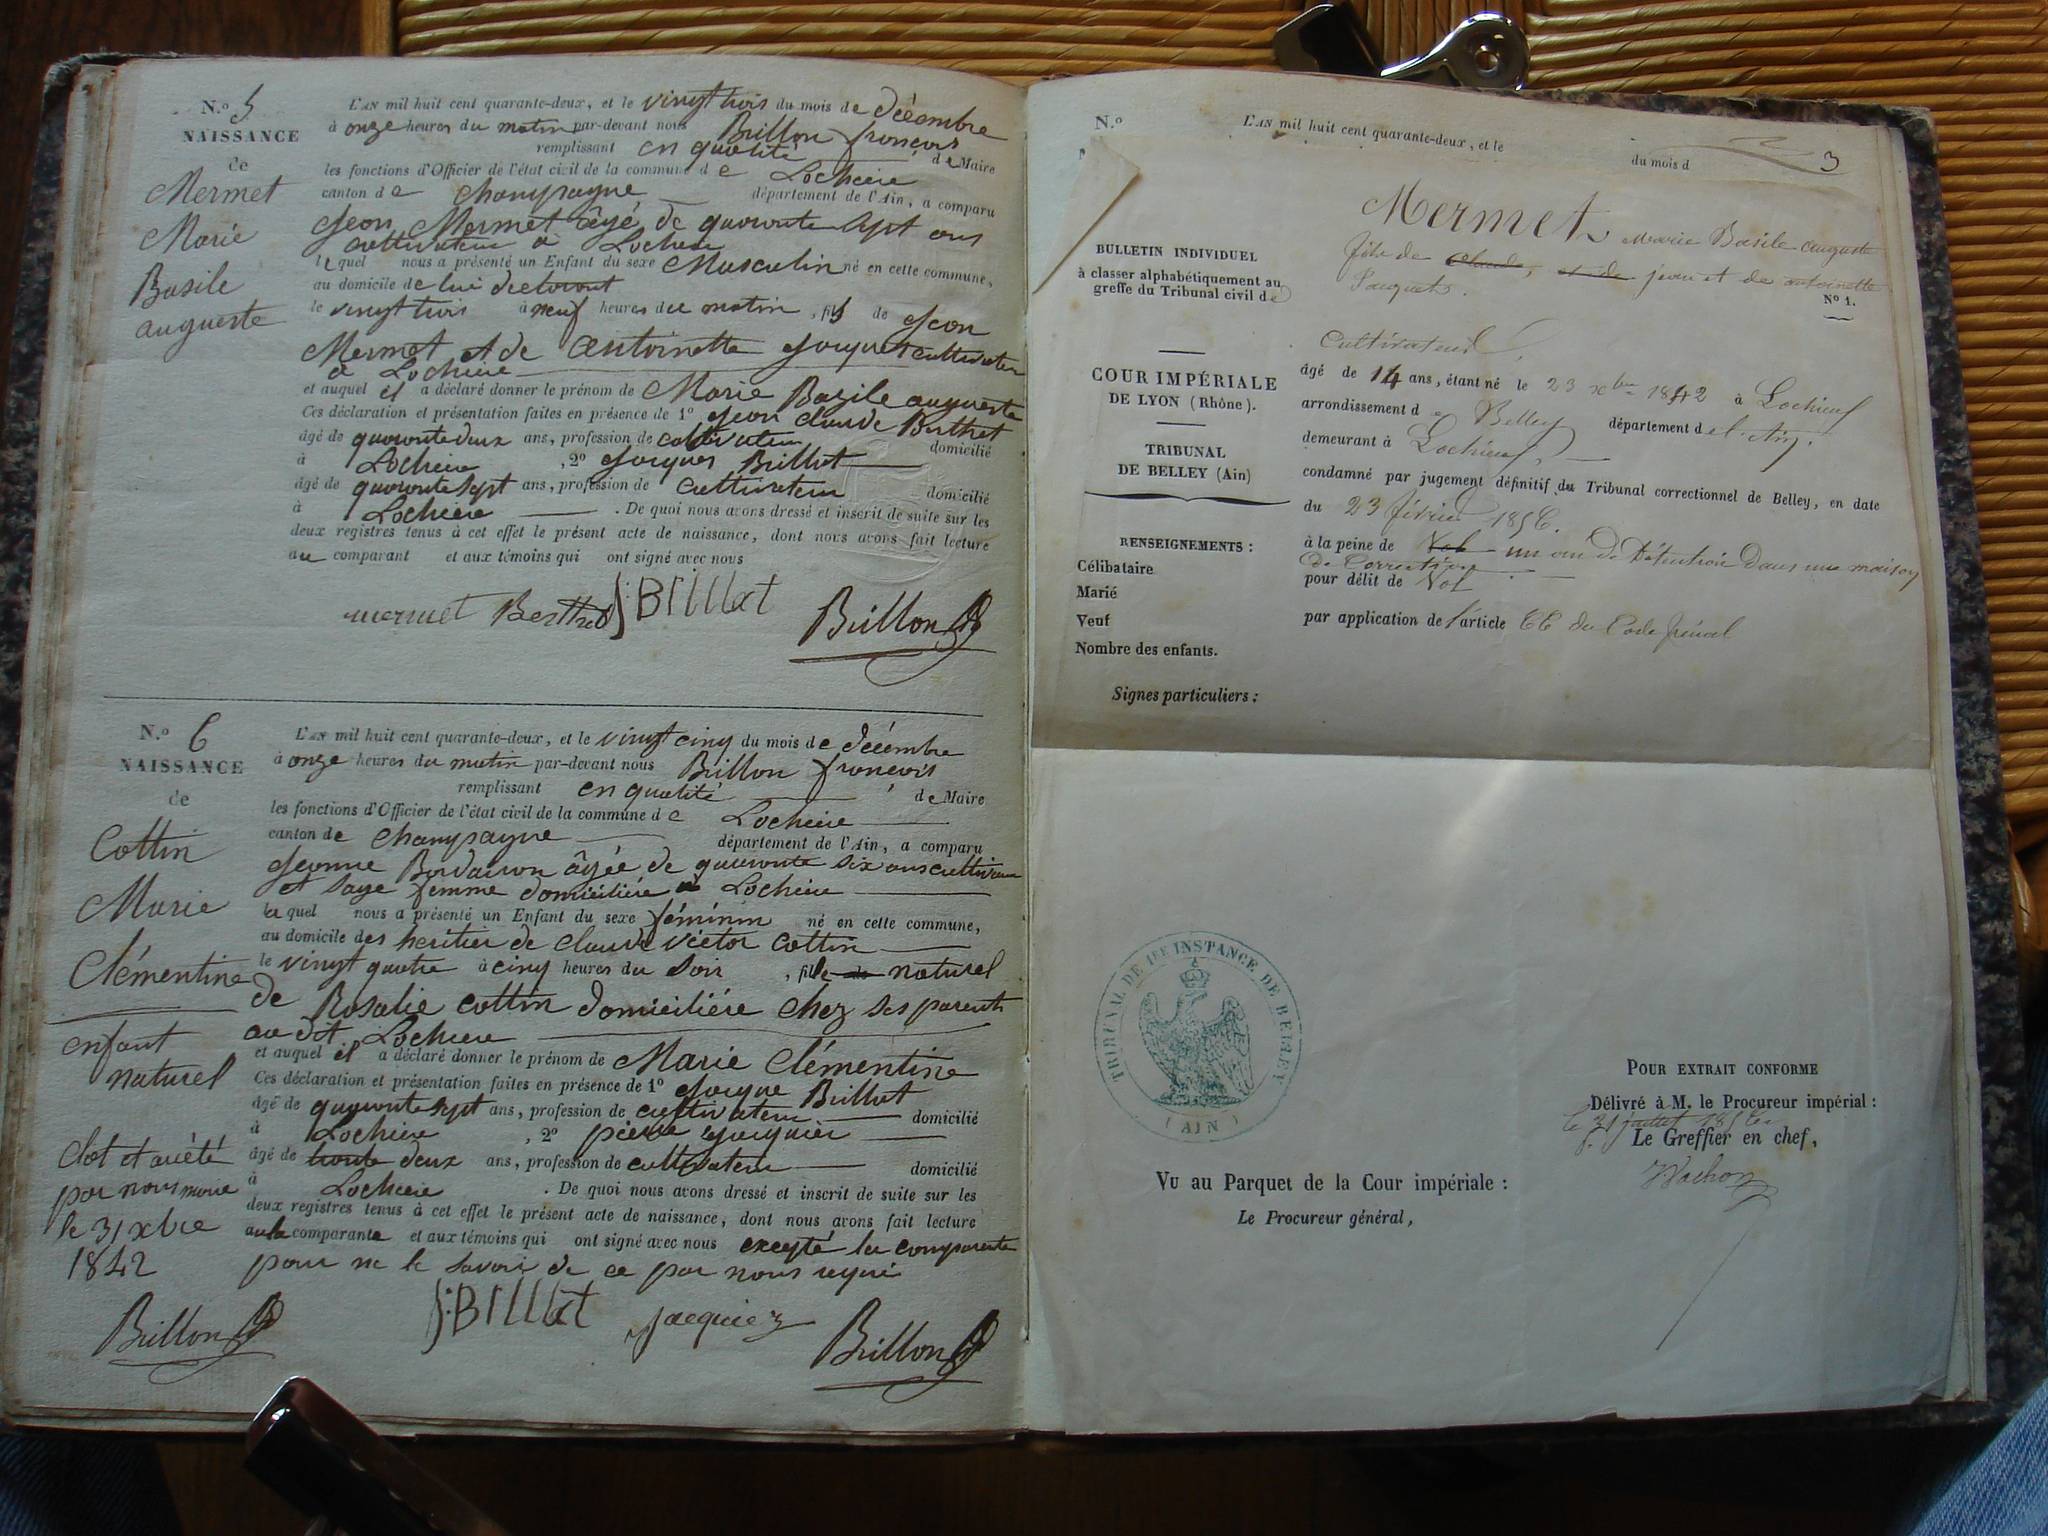 N.o 5
NAISSANCE
de
Mermet
Marie
Basile
auguste
L'AN mil huit cent quarante-deux, et le vingt trois du mois de décembre
à onze heures du matin par-devant nous Brillon françois
remplissant en qualité de Maire
les fonctions d'Officier de l'état civil de la commune de Lochieu
canton de Champagne département de l'Ain, a comparu
Jean Mermet âgé de quarante sept ans
cultivateur à Lochieu
lequel nous a présenté un Enfant du sexe Masculin né en cette commune,
au domicile de lui déclarant
le vingt trois à neuf heures du matin, fils de Jean
Mermet et de Antoinette cultivateur
à Lochieu
et auquel il a déclaré donner le prénom de Marie Basile auguste
Ces déclaration et présentation faites en présence de 1o Jean Claude Berthet
âgé de quarante deux ans, profession de cultivateur domicilié
à Lochieu, 2o Jacques Billiat
âgé de quarante sept ans, profession de cultivateur domicilié
à Lochieu. De quoi nous avons dressé et inscrit de suite sur les
deux registres tenus à cet effet le présent acte de naissance, dont nous avons fait lecture
au comparant et aux témoins qui ont signé avec nous
mermet Berthet J: Billiat Brillon
N.o 6
NAISSANCE
de
Cottin
Marie
Clémentine
enfant
naturel
Clot et arrêté
par nous maire
le 31 xbre
1842
Brillon
L'AN mil huit cent quarante-deux, et le vingt cinq du mois de décembre
à onze heures du matin par-devant nous Brillon françois
remplissant en qualité de Maire
les fonctions d'Officier de l'état civil de la commune de Lochieu
canton de Champagne département de l'Ain, a comparu
Jeanne âgée de quarante six ans
et sage femme domiciliée à Lochieu
laquel nous a présenté un Enfant du sexe féminin né en cette commune,
au domicile des heritier de claude victor Cottin
le vingt quatre à cinq heures du soir, fille de naturel
de Rosalie cottin domiciliée chez ses parents
au dit Lochieu
et auquel il a déclaré donner le prénom de Marie Clémentine
Ces déclaration et présentation faites en présence de 1o Jacque Billiat
âgé de quarante sept ans, profession de cultivateur domicilié
à Lochieu, 2o pierre Jacquier
âgé de trente deux ans, profession de cultivateur domicilié
à Lochieu. De quoi nous avons dressé et inscrit de suite sur les
deux registres tenus à cet effet le présent acte de naissance, dont nous avons fait lecture
a la comparante et aux témoins qui ont signé avec nous excepté la comparante
pour ne le savoir de ce par nous requi
J: Billiat Jacquier Brillon
N.o
L'AN mil huit cent quarante-deux, et le du mois d
3
Mermet, Marie Basile auguste
fils de Claude, et de jean et de antoinette
No 1.
BULLETIN INDIVIDUEL
à classer alphabétiquement au
greffe du Tribunal civil de
COUR IMPÉRIALE
DE LYON (Rhône).
TRIBUNAL
DE BELLEY (Ain)
RENSEIGNEMENTS :
Célibataire
Marié
Veuf
Nombre des enfants.
Signes particuliers :
Cultivateur
âgé de 14 ans, étant né le 23 xbre 1842 à Lochieu
arrondissement de Belley département de l'Ain.
demeurant à Lochieu,
condamné par jugement définitif du Tribunal correctionnel de Belley, en date
du 23 février 1856.
à la peine de Vol un an de détention dans une maison
de Correction
pour délit de Vol
par application de l'article 66 du Code pénal
TRIBUNAL DE 1RE INSTANCE DE BELLEY
(AIN)
POUR EXTRAIT CONFORME
Délivré à M. le Procureur impérial :
le 31 juillet 1856.
Le Greffier en chef,
VU au Parquet de la Cour impériale :
Le Procureur général,